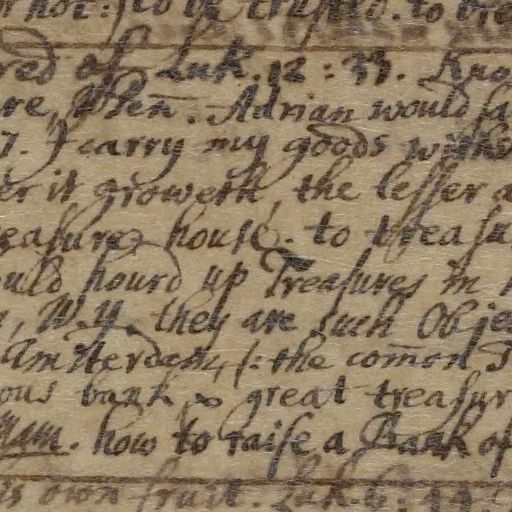 not: to be trusted. to bre
red of Luk. 12: 33. Kno
re, When. Adrian would sa
7. I carry my goods with
er it groweth, the lesser a
easure house. to treasu
ould hourd up Treasures in
, W.Y. they are such Obje
Amsterdam, /: the comōn T
ous bank, & great treasur
Mam. how to raise a Bank of
s own fruit. Luk. 6: 44.